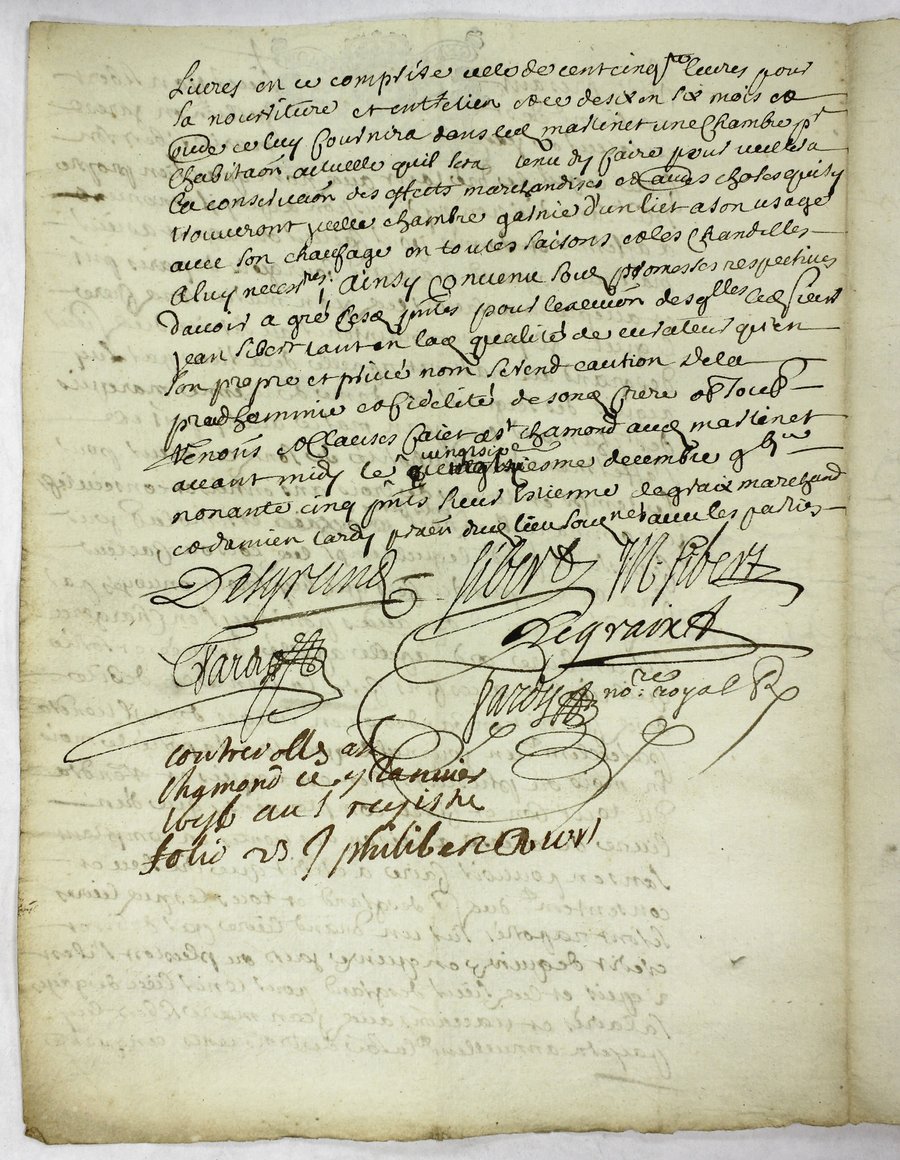 Livres en ce comprise celle de cent cinq.te livres pour
sa nourriture et entretien et ce de six en six mois et
outre ce luy fournira dans led martinet une chambre pr
habitaon actuelle quil sera tenu dy faire pour veiller a
la conservaon des effects marchandises et aues choses qui sy
trouveront ycelle chambre garnie d'un lict a son usage
avec son chaufage en toutes saisons et les chandelles
a luy necesres. Ainsy convenu soub promesses respectives
davoir a gré ces pntes pour lexecuon desqlles led sieur
jean sibert tant en lad qualité de curateur qu'en
son propre et privé nom se rend caution de la
preudhommie et fidelité de sond frere
et clauses faict a st chamond aud martinet
avant midy le vingtsixe decembre
nonante cinq pnts sieur Estienne degraix marchand
et damien tardy praen dud lieu sousnés avec les parties
Desgrand sibert M. sibert
Degraix
Tardy
Jardy nore royal R
controlle a st
chamond ce 7 janvier
au 1 registre
folio 23 philibert